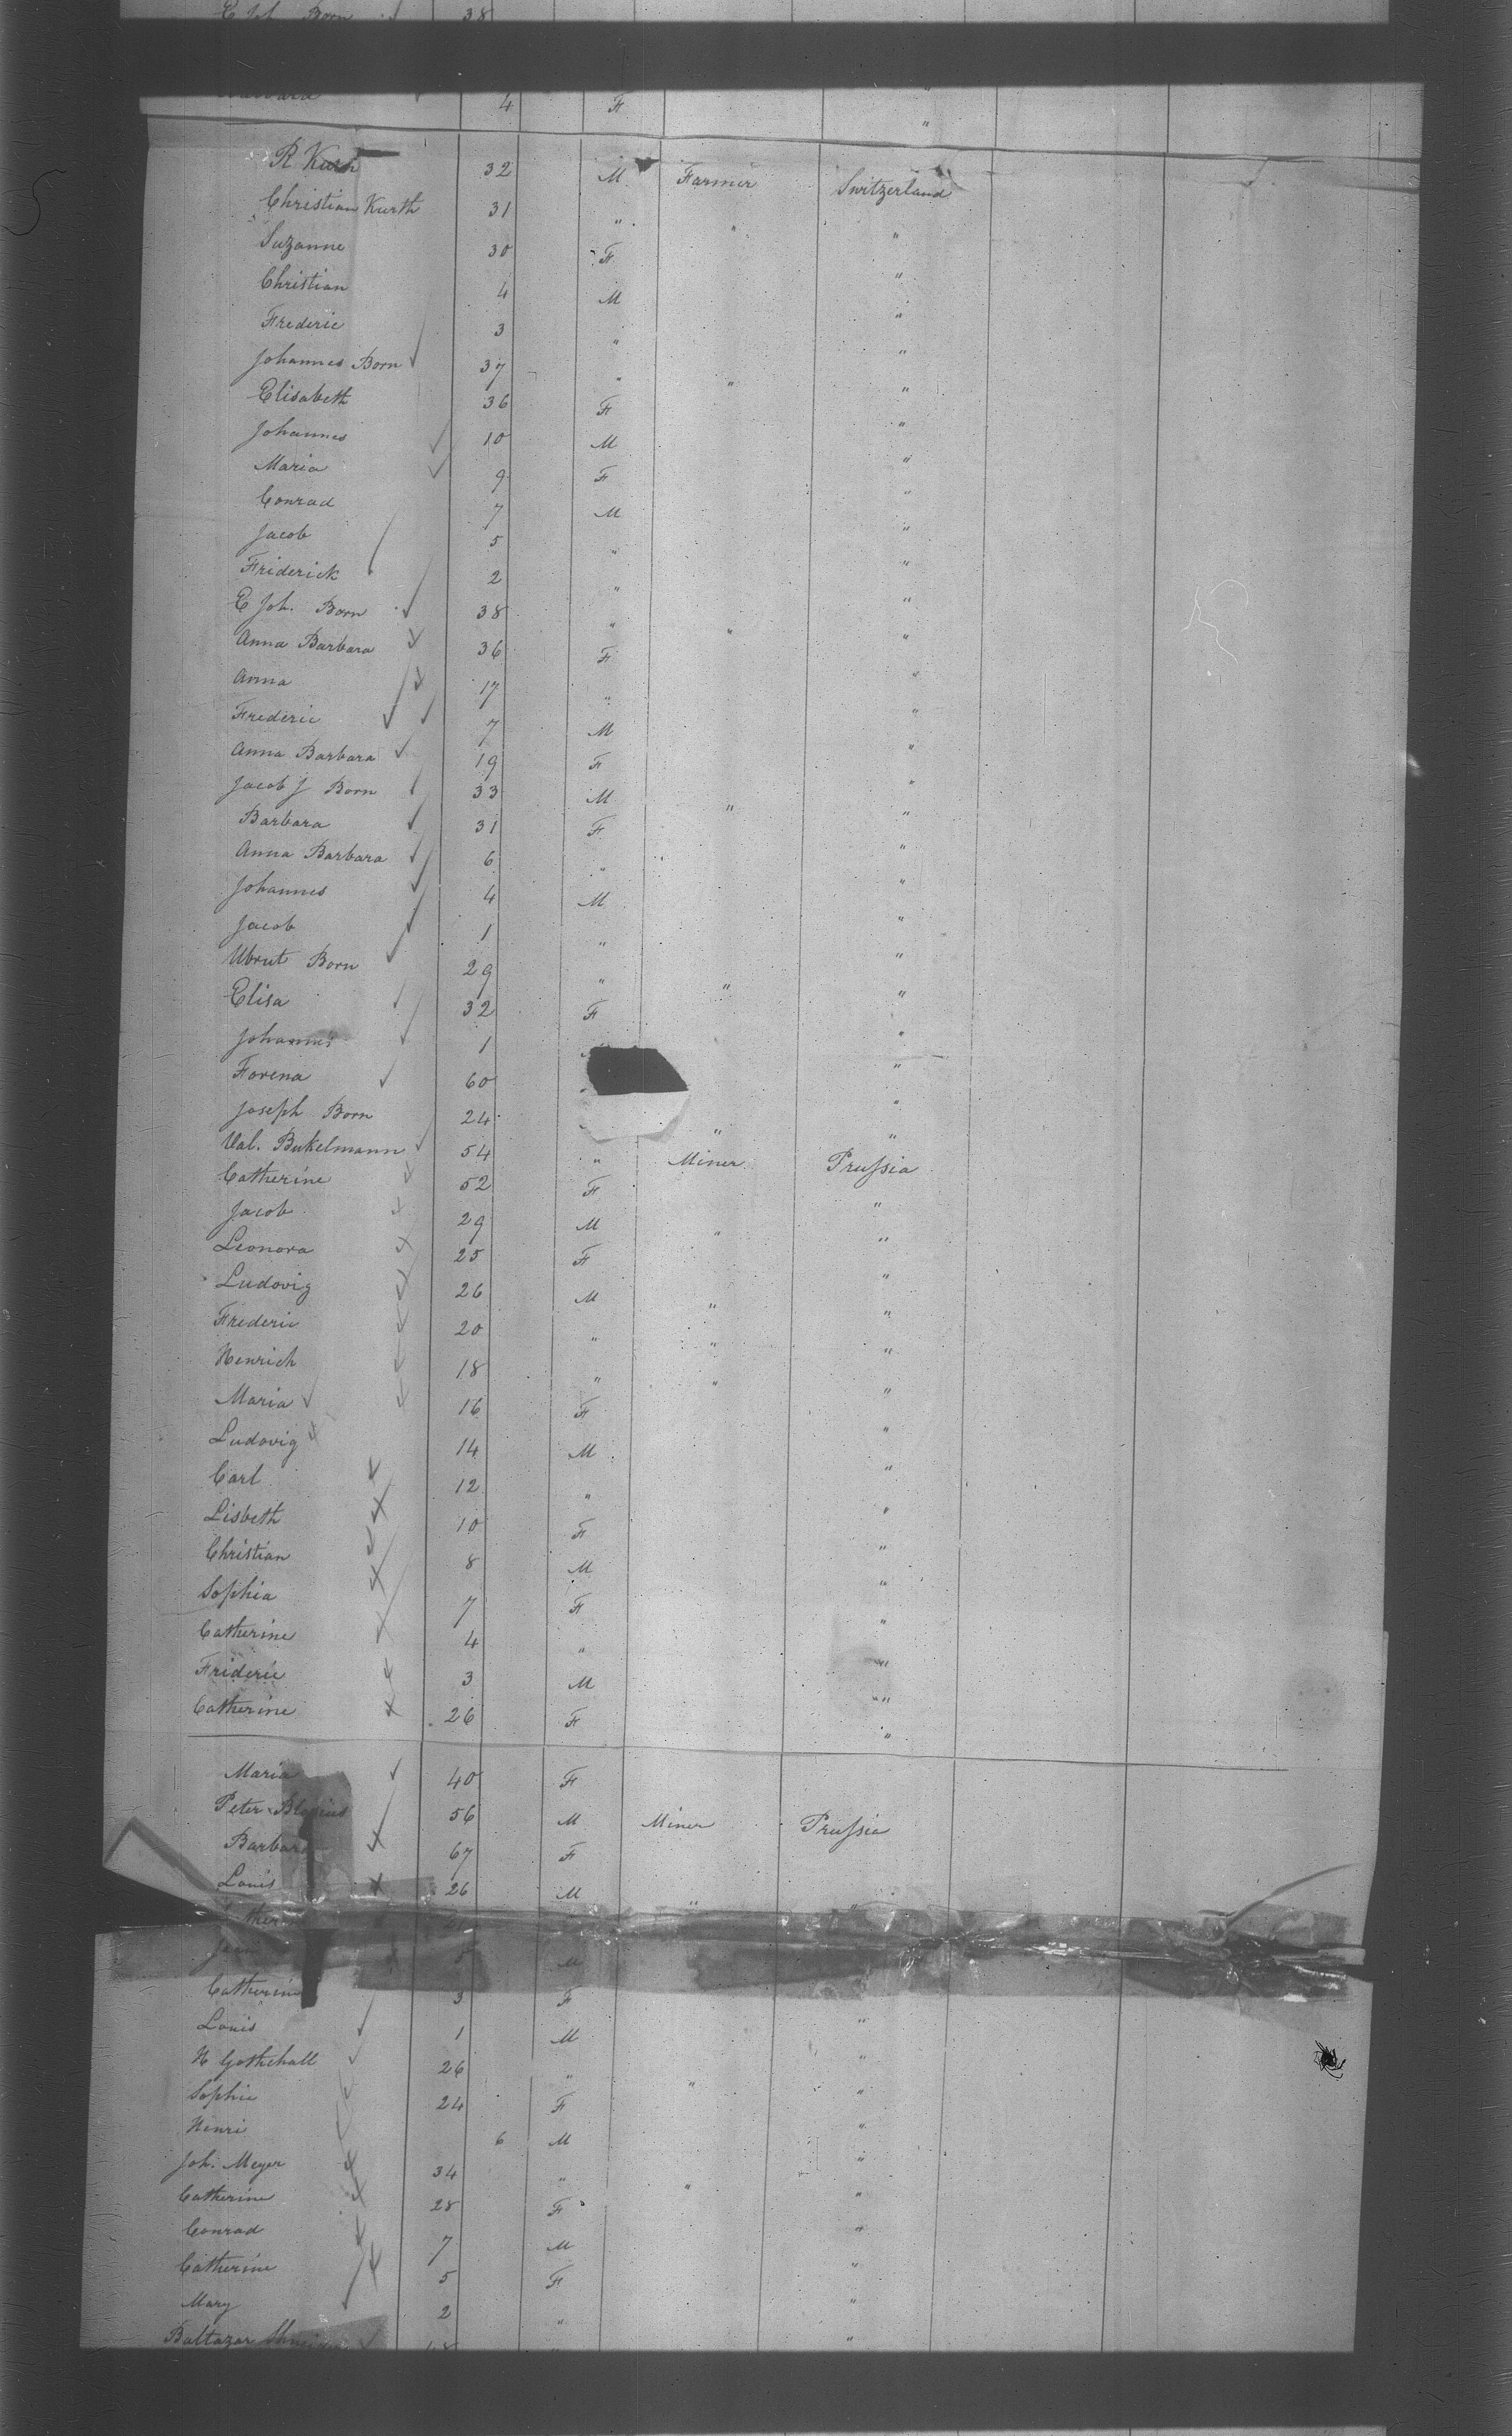 E Joh. Born 38
4 F "
R Kurth 32 M Farmer Switzerland
Christian Kurth 31 " " "
Suzanne 30 F "
Christian 4 M "
Frederic 3 " "
Johannes Born 37 " " "
Elisabeth 36 F "
Johannes 10 M "
Maria 9 F "
Conrad 7 M "
Jacob 5 " "
Friderick 2 " "
E Joh. Born 38 " " "
Anna Barbara 36 F "
Anna 17 " "
Frederic 7 M "
Anna Barbara 19 F "
Jacob J Born 33 M " "
Barbara 31 F "
Anna Barbara 6 " "
Johannes 4 M "
Jacob 1 " "
Ubrut Born 29 " " "
Elisa 32 F "
Johannes 1 "
Forena 60 "
Joseph Born 24 " "
Val. Bukelmann 54 " Miner Prussia
Catherine 52 F "
Jacob 29 M " "
Leonora 25 F "
Ludovig 26 M " "
Frederic 20 " " "
Henrich 18 " " "
Maria 16 F "
Ludovig 14 M "
Carl 12 " "
Lisbeth 10 F "
Christian 8 M "
Sophia 7 F "
Catherine 4 " "
Frideric 3 M "
Catherine 26 F "
Maria 40 F
Peter 56 M Miner Prussia
Barbara 67 F
Louis 26 M " "
5 M
Catherine 3 F
Louis 1 M "
H Gothchall 26 " " "
Sophie 24 F "
Henri 6 M "
Joh. Meyer 34 " " "
Catherine 28 F "
Conrad 7 M "
Catherine 5 F "
Mary 2 " "
Baltazar "